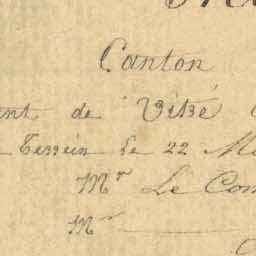 Canton
de Vitré
Terrein le 22
Mr Le
Mr